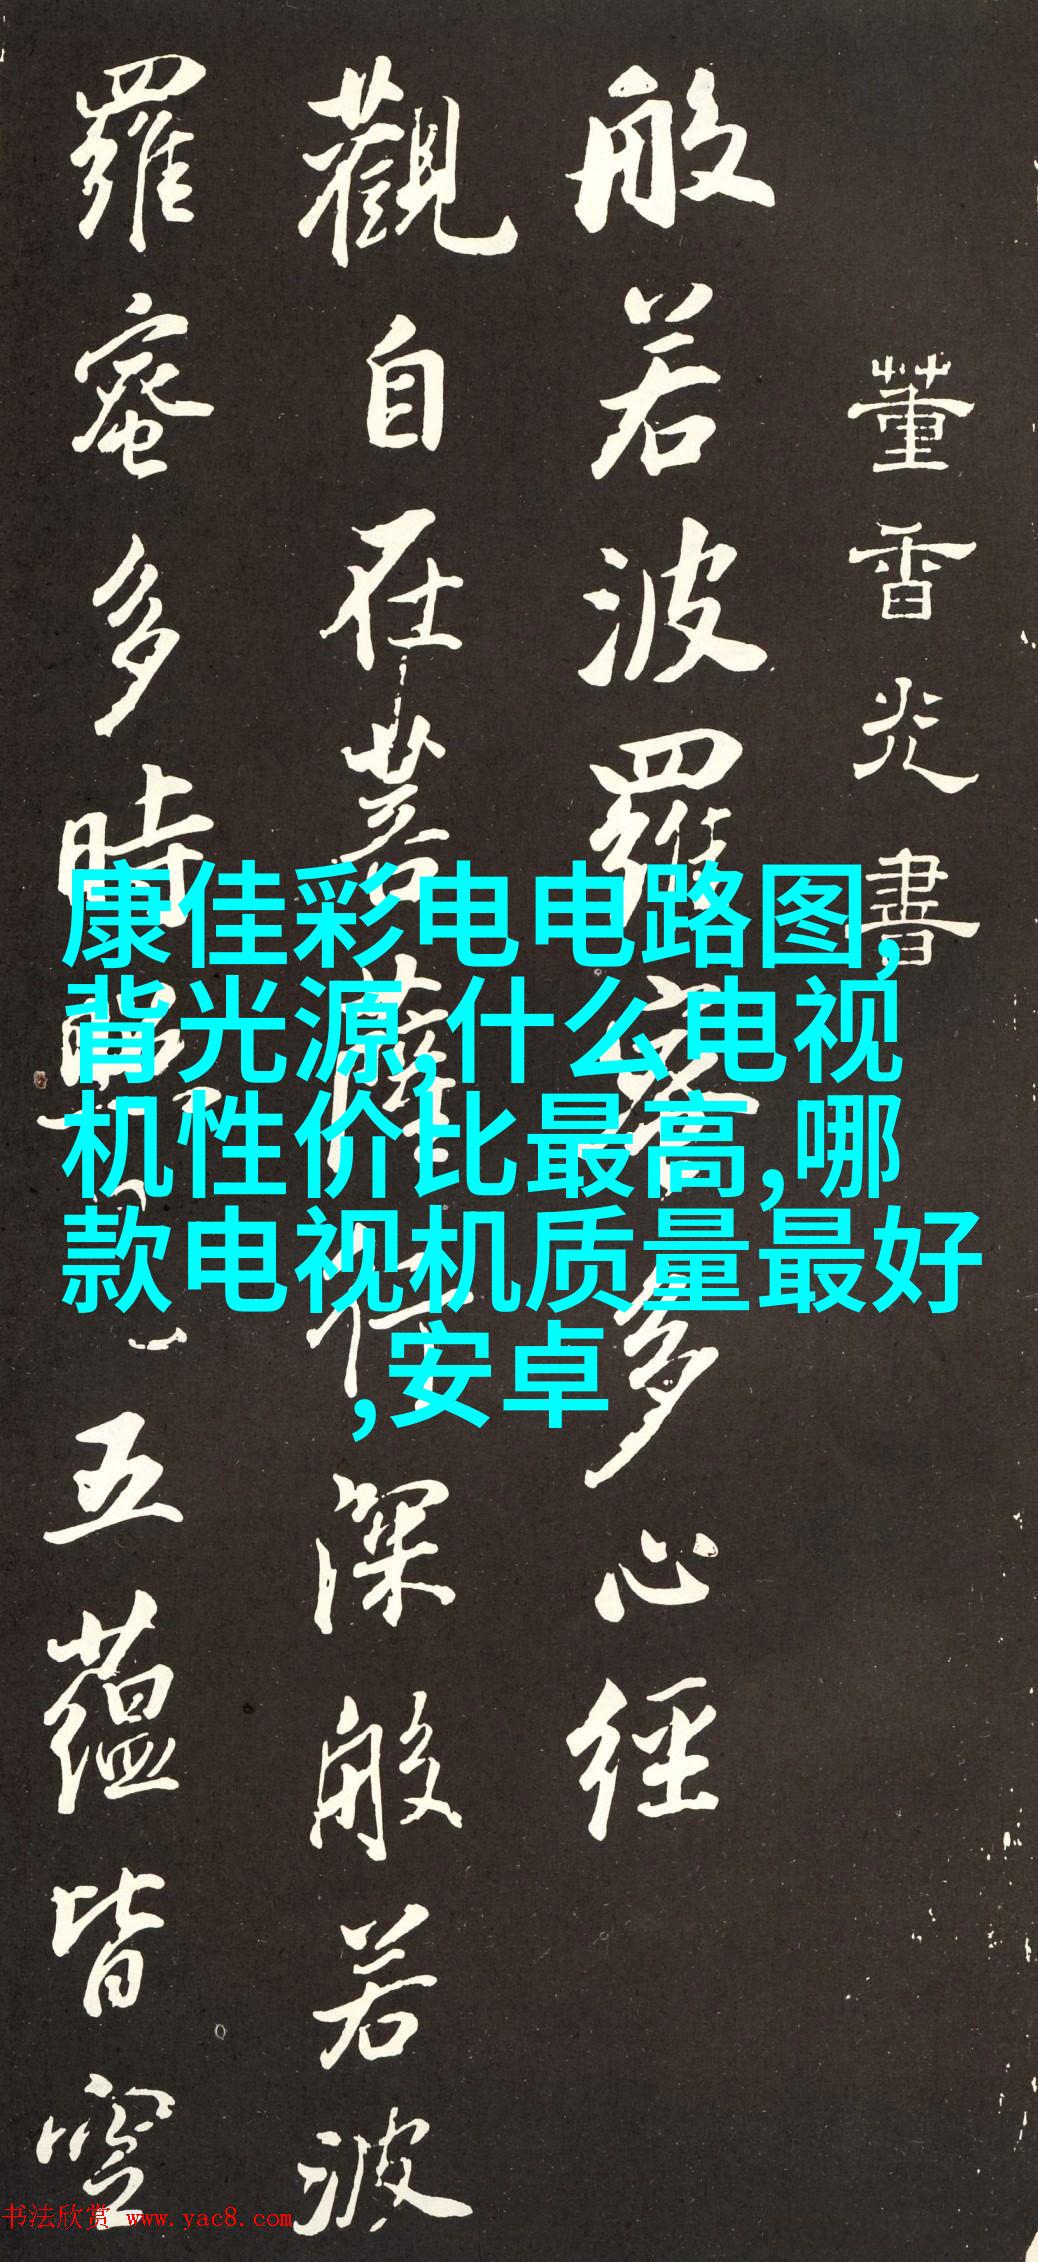 董香光書
般若波羅蜜多心經
觀自在菩薩行深般若波
羅蜜多時照見五蘊皆空
康佳彩电电路图,
背光源,什么电视
机性价比最高,哪
款电视机质量最好
,安卓
书法欣赏 www.yac8.com